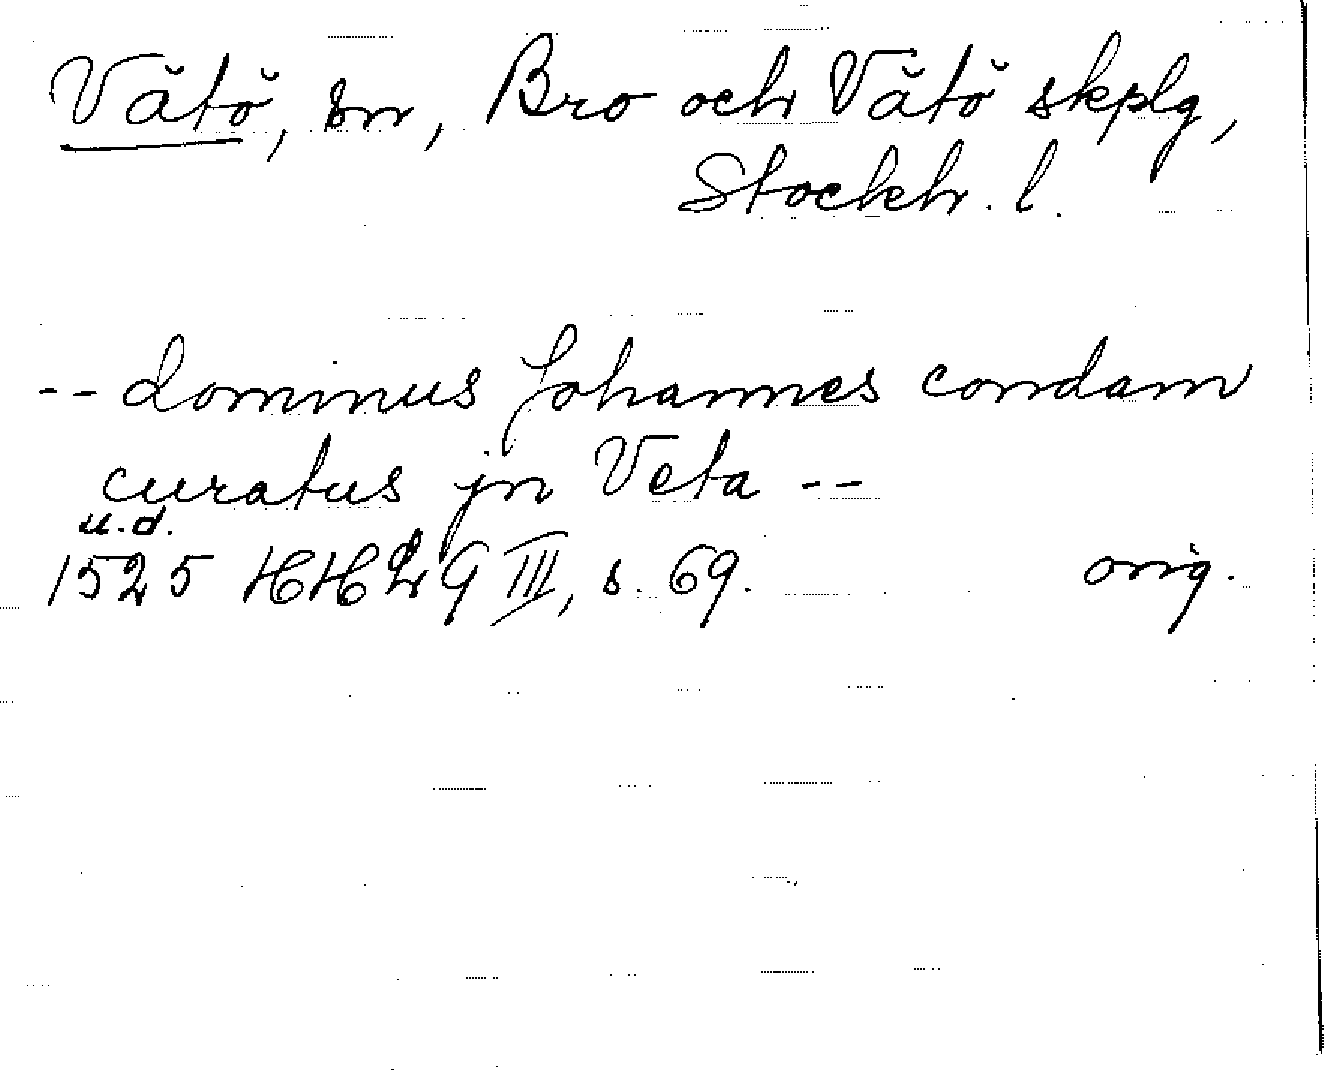 Vätö, sn, Bro och Vätö skplg,
Stockh. l.
-- dominus Johannes condam
curatus jn Veta --
u.d.
1525 HH 29 III, s. 69. orig.